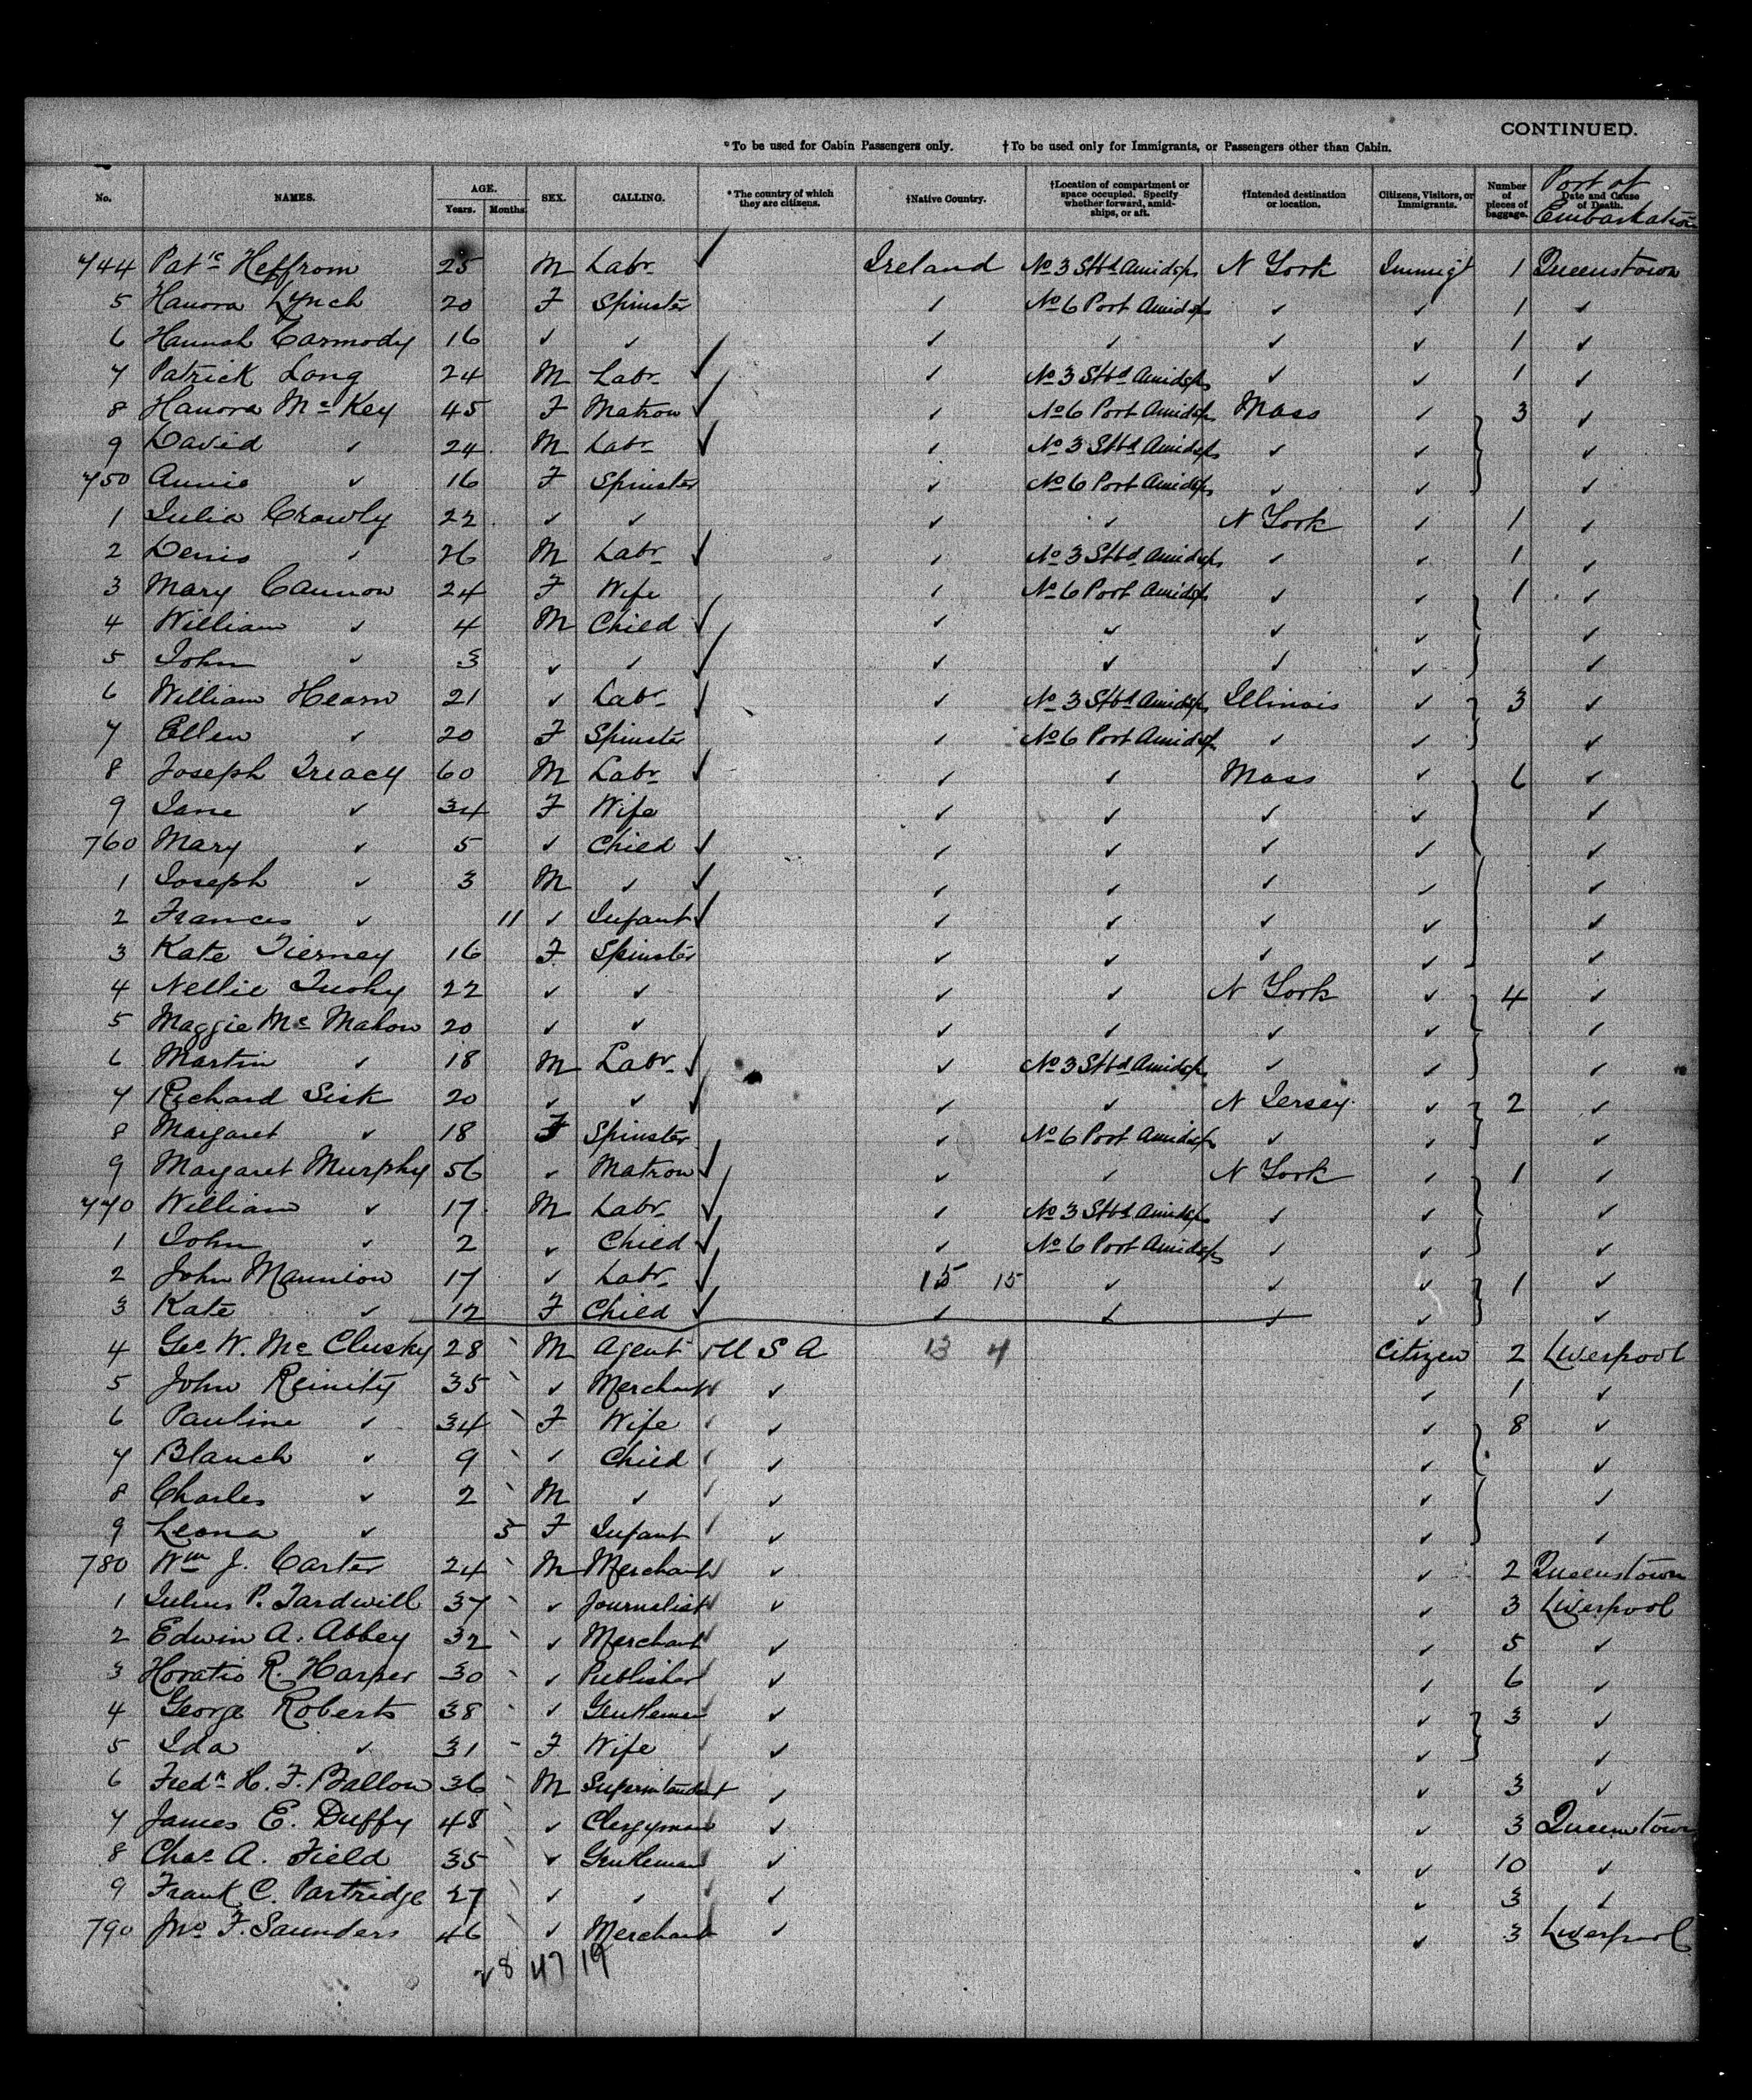 CONTINUED.
*To be used for Cabin Passengers only. †To be used only for Immigrants, or Passengers other than Cabin.
No. NAMES. AGE. Years. Months. SEX. CALLING. *The country of which they are citizens. †Native Country. †Location of compartment or space occupied. Specify whether forward, amidships, or aft. †Intended destination or location. Citizens, Visitors, or Immigrants. Number of pieces of baggage. Date and Cause of Death. Port of Embarkation
744 Patᶜ Heffrom 25 M Labr ✓ Ireland No 3 Stbd Amidsps N York Immigt 1 Queenstown
5 Hanora Lynch 20 F Spinster ✓ No 6 Port Amidsps ✓ ✓ 1 ✓
6 Hannah Carmody 16 ✓ ✓ ✓ ✓ ✓ ✓ 1 ✓
7 Patrick Long 24 M Labr ✓ ✓ No 3 Stbd Amidsps ✓ ✓ 1 ✓
8 Hanora Mc Key 45 F Matron ✓ ✓ No 6 Port Amidsps Mass ✓ 3 ✓
9 David ✓ 24 M Labr ✓ ✓ No 3 Stbd Amidsps ✓ ✓ ✓
750 Annie ✓ 16 F Spinster ✓ No 6 Port Amidsps ✓ ✓ ✓
1 Julia Crowly 22 ✓ ✓ ✓ ✓ N York ✓ 1 ✓
2 Denis ✓ 26 M Labr ✓ ✓ No 3 Stbd Amidsps ✓ ✓ 1 ✓
3 Mary Cannon 24 F Wife ✓ No 6 Port Amidsps ✓ ✓ 1 ✓
4 William ✓ 4 M Child ✓ ✓ ✓ ✓ ✓ ✓
5 John ✓ 3 ✓ ✓ ✓ ✓ ✓ ✓ ✓ ✓
6 William Hearn 21 ✓ Labr ✓ ✓ No 3 Stbd Amidsps Illinois ✓ 3 ✓
7 Ellen ✓ 20 F Spinster ✓ No 6 Port Amidsps ✓ ✓ ✓
8 Joseph Treacy 60 M Labr ✓ ✓ ✓ Mass ✓ 6 ✓
9 Jane ✓ 34 F Wife ✓ ✓ ✓ ✓ ✓
760 Mary ✓ 5 ✓ Child ✓ ✓ ✓ ✓ ✓ ✓
1 Joseph ✓ 3 M ✓ ✓ ✓ ✓ ✓ ✓ ✓
2 Frances ✓ 11 ✓ Infant ✓ ✓ ✓ ✓ ✓ ✓
3 Kate Tierney 16 F Spinster ✓ ✓ ✓ ✓ ✓
4 Nellie Tuohy 22 ✓ ✓ ✓ ✓ N York ✓ 4 ✓
5 Maggie Mc Mahon 20 ✓ ✓ ✓ ✓ ✓ ✓ ✓
6 Martin ✓ 18 M Labr ✓ ✓ No 3 Stbd Amidsps ✓ ✓ ✓
7 Richard Sisk 20 ✓ ✓ ✓ ✓ ✓ N Jersey ✓ 2 ✓
8 Margaret ✓ 18 F Spinster ✓ No 6 Port Amidsps ✓ ✓ ✓
9 Margaret Murphy 56 ✓ Matron ✓ ✓ ✓ N York ✓ 1 ✓
770 William ✓ 17 M Labr ✓ ✓ No 3 Stbd Amidsps ✓ ✓ ✓
1 John ✓ 2 ✓ Child ✓ ✓ No 6 Port Amidsps ✓ ✓ ✓
2 John Mannion 17 ✓ Labr ✓ 15 15 ✓ ✓ ✓ 1 ✓
3 Kate ✓ 12 F Child ✓ ✓ ✓ ✓ ✓ ✓
4 Geo W. Mc Clusky 28 M Agent ✓ U S A 13 4 Citizen 2 Liverpool
5 John Reinity 35 ✓ Merchant ✓ ✓ ✓ 1 ✓
6 Pauline ✓ 34 F Wife ✓ ✓ ✓ 8 ✓
7 Blanch ✓ 9 ✓ Child ✓ ✓ ✓ ✓
8 Charles ✓ 2 M ✓ ✓ ✓ ✓ ✓
9 Leona ✓ 5 F Infant ✓ ✓ ✓ ✓
780 Wm J. Carter 24 M Merchant ✓ ✓ ✓ 2 Queenstown
1 Julius P. Tardwill 37 ✓ Journalist ✓ ✓ ✓ 3 Liverpool
2 Edwin A. Abbey 32 ✓ Merchant ✓ ✓ ✓ 5 ✓
3 Horatio R. Harper 30 ✓ Publisher ✓ ✓ ✓ 6 ✓
4 George Roberts 38 ✓ Gentleman ✓ ✓ ✓ 3 ✓
5 Ida ✓ 31 F Wife ✓ ✓ ✓ ✓
6 Fredk H. F. Ballou 36 M Superintendent ✓ ✓ 3 ✓
7 James E. Duffy 48 ✓ Clergyman ✓ ✓ 3 Queenstown
8 Chas A. Field 35 ✓ Gentleman ✓ ✓ 10 ✓
9 Frank C. Partridge 27 ✓ ✓ ✓ ✓ ✓ 3 ✓
790 Jno F. Saunders 46 ✓ Merchant ✓ ✓ 3 Liverpool
28 47 19